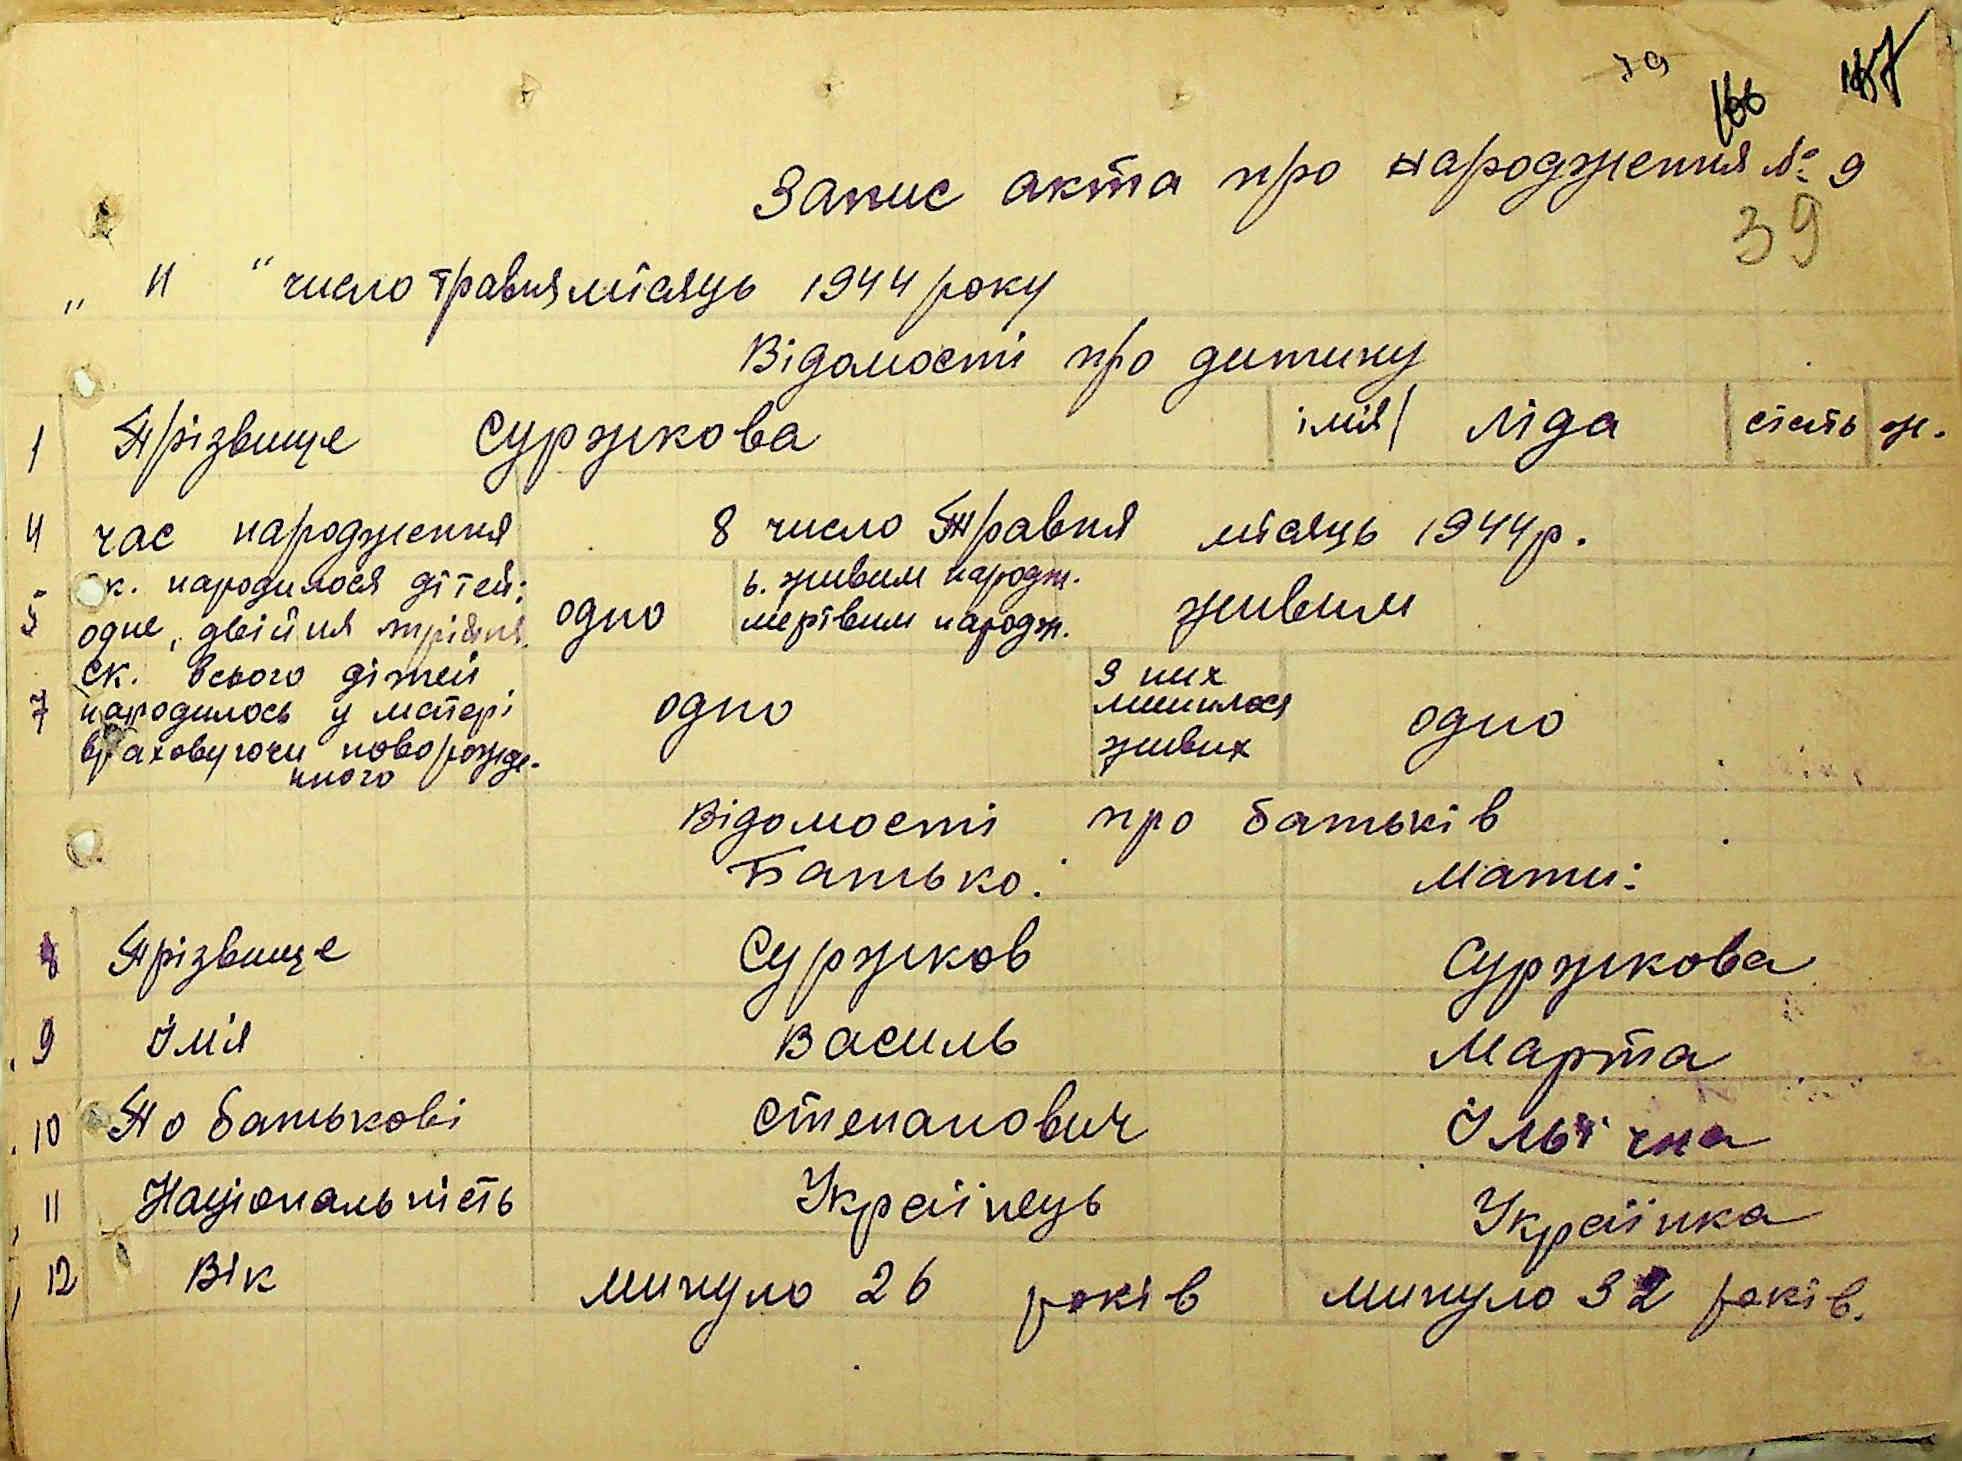 39
166
Запис акта про народження № 9
39
„ 11 “ число травня місяць 1944 року
Відомості про дитину
1 Прізвище Суржкова імія Ліда стать ж.
4 час народження 8 число Травня місяць 1944р.
5 ск. народилося дітей: одне, двійня трійня. одно ь. живим народж. мертвим народж. живим
7 ск. всього дітей народилось у матері враховуючи новорожде-нного одно з них лишилося живих одно
Відомості про батьків
Батько: Мати:
8 Прізвище Суржков Суржкова
9 Імія Василь Марта
10 По батькові Степанович Ільїчна
11 Національність Українець Українка
12 Вік минуло 26 років минуло 32 років.